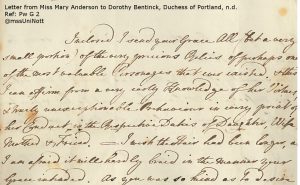 Letter from Miss Mary Anderson to Dorothy Bentinck, Duchess of Portland, n.d.
Ref: Pw G 2
@mssUniNott
Inclosed I send your Grace All, but a very
small portion of the very precious Relics of perhaps one
of the most valuable Personages that ever existed, & this
I can affirm from a very early Knowledge of her Virtues,
& truly unexceptionable Behaviour in every point of
her Conduct in the Respective Duties of Daughter, Wife
Mother & Friend. — I wish the Hair had been longer, as
I am afraid it will hardly bind in the manner your
Grace intended. As you was so kind as to desire